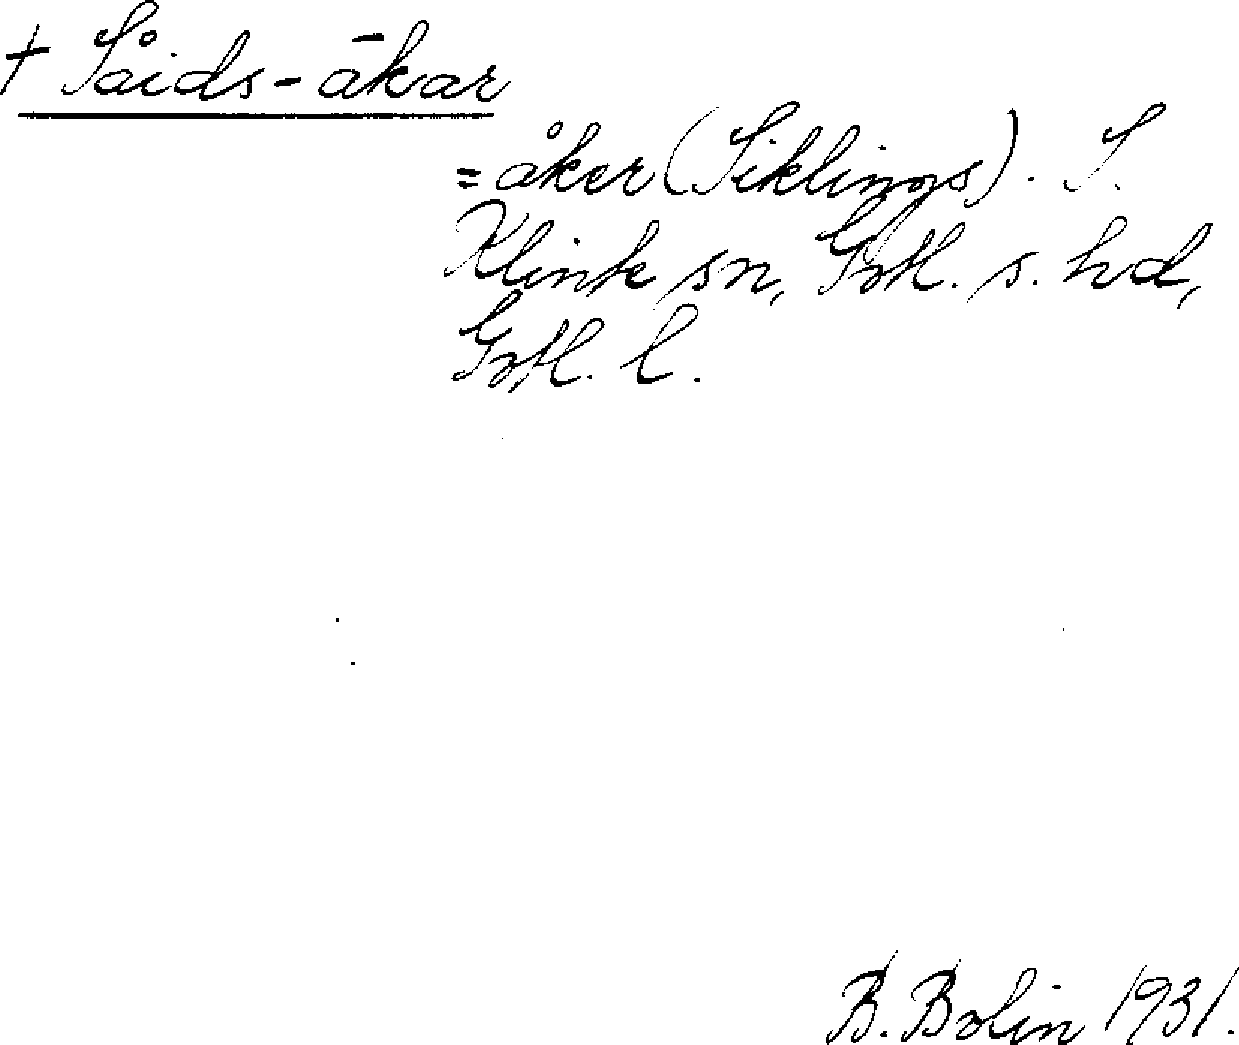 † Såids-ākar
= åker (Siklings). S.
Klinte sn, Gotl. s. hd,
Gotl. l.
B. Bolin 1931.